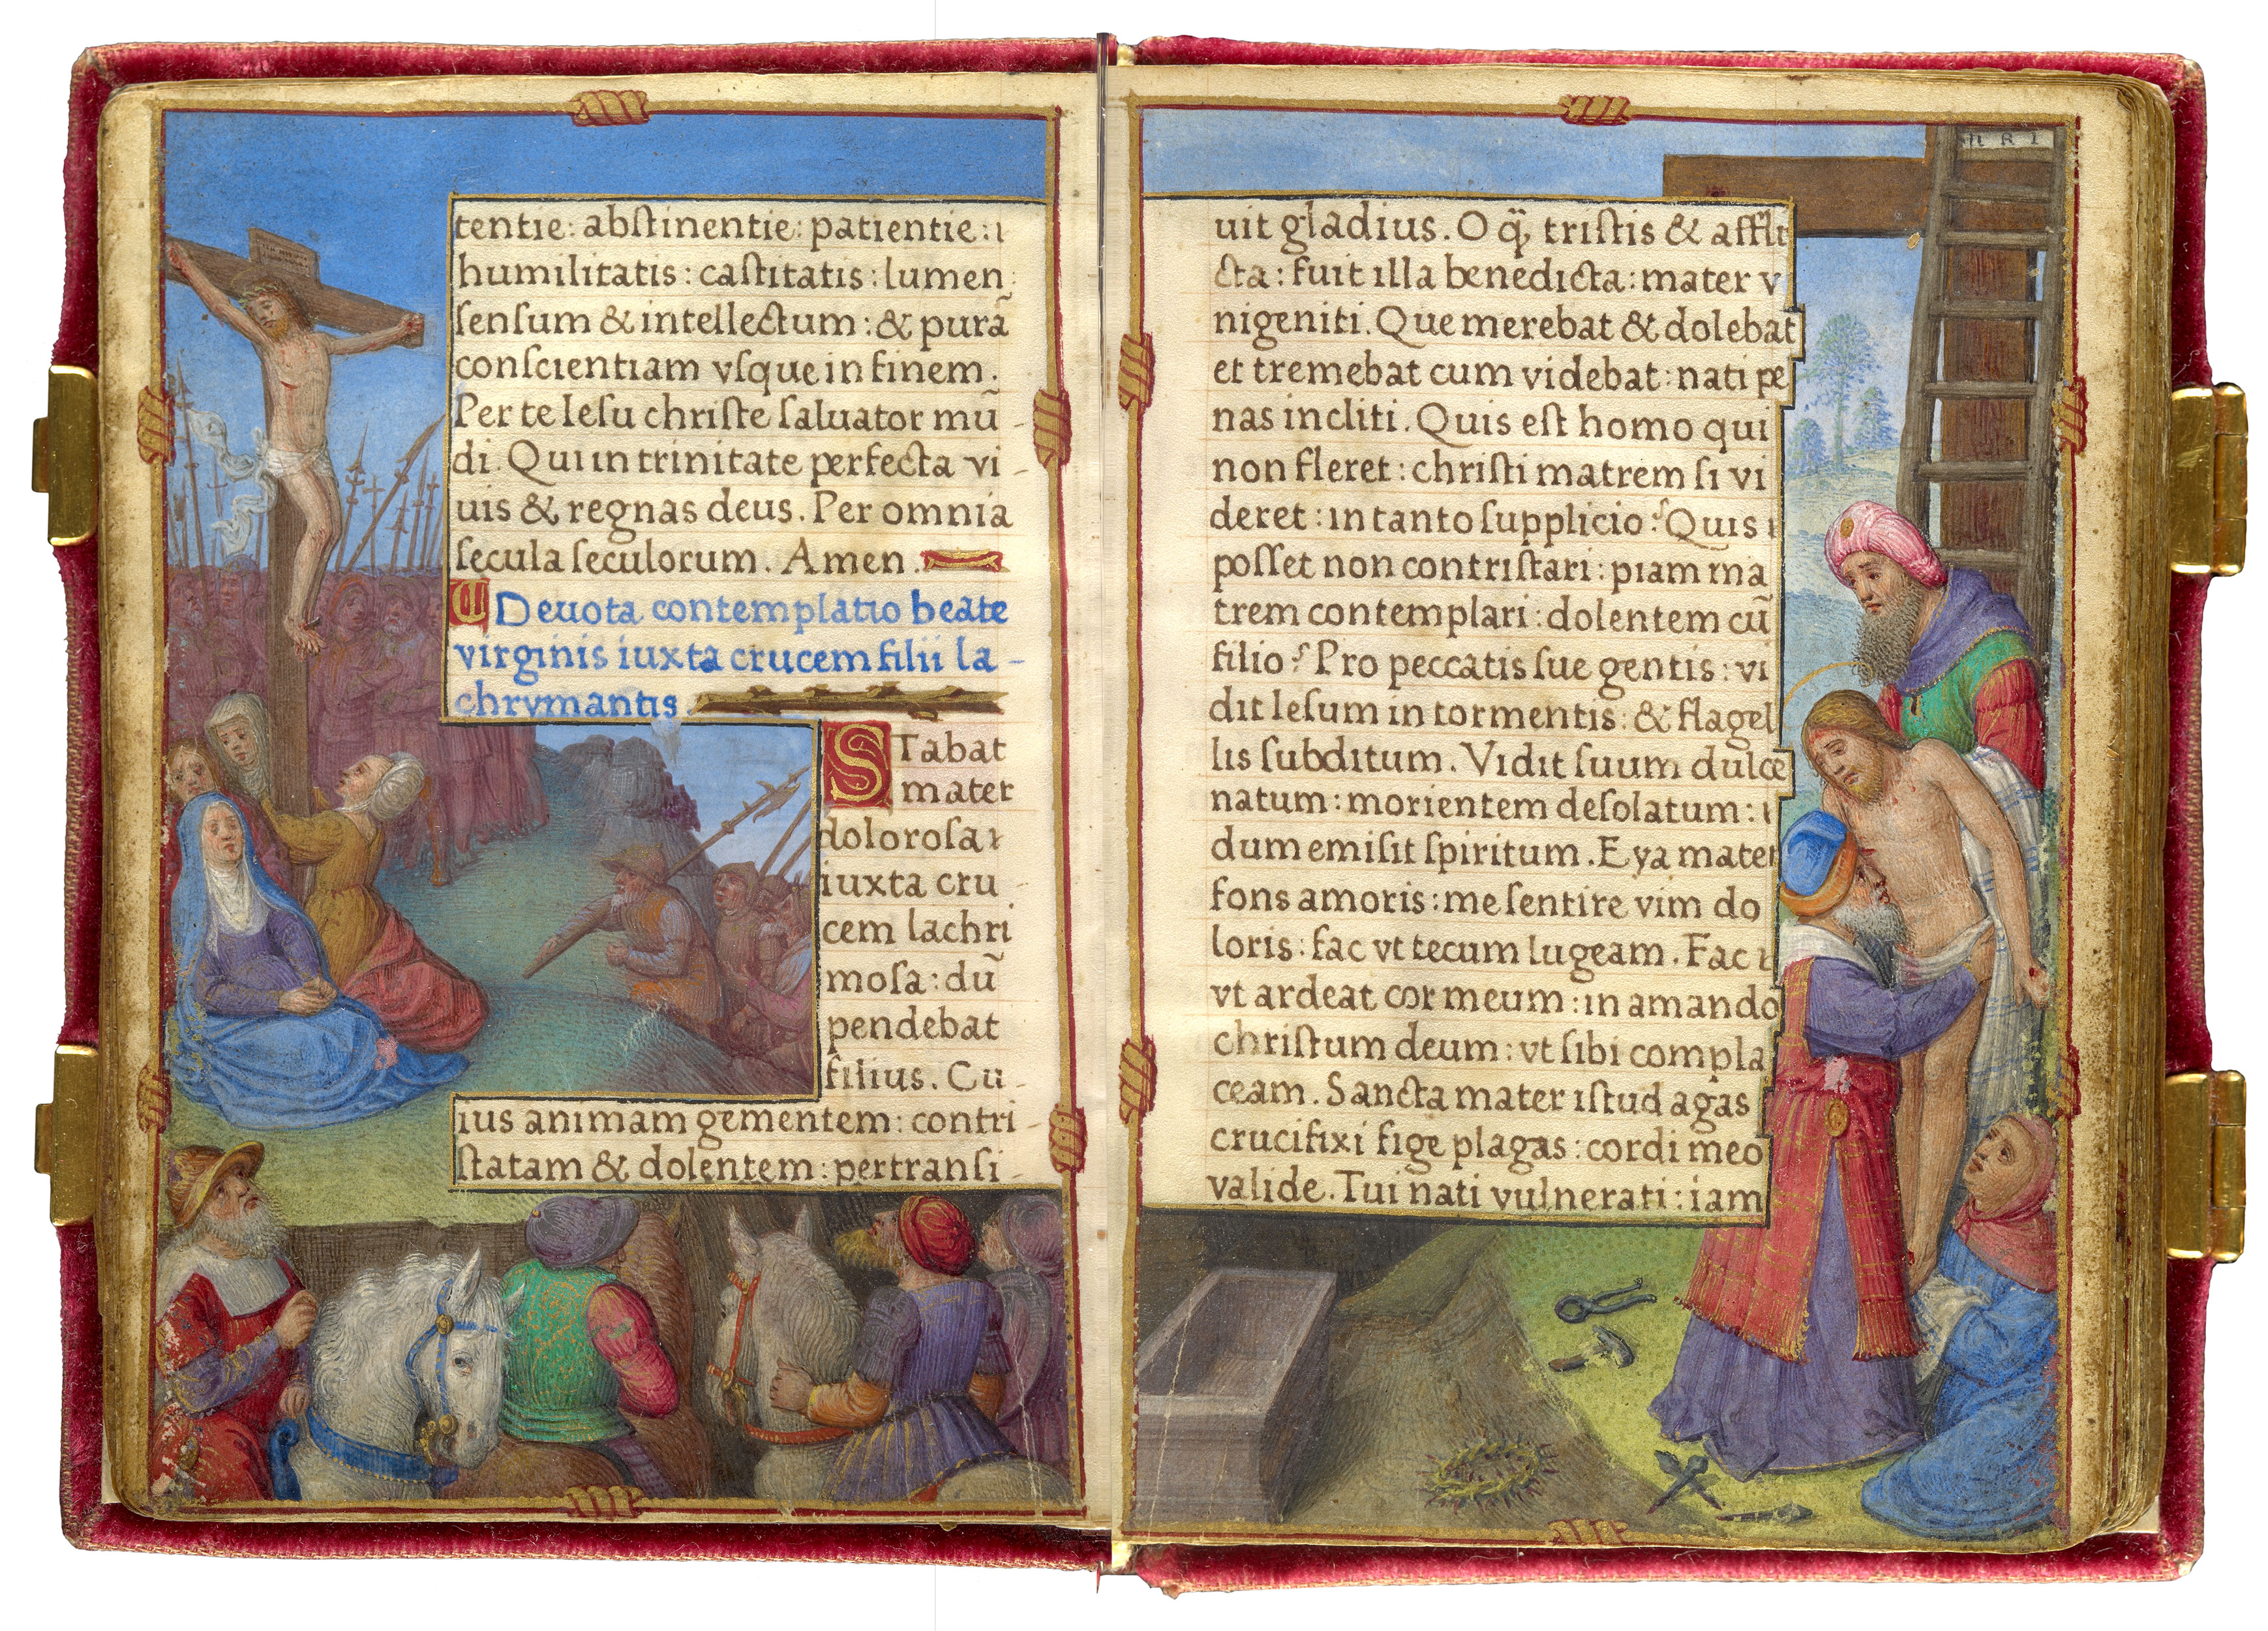 tentie: abſtinentie: patientie: ı
humilitatis: caſtitatis: lumen
ſenſum & intellectum: & purā
conſcientiam vſque in finem.
Per te Ieſu chriſte ſaluator mū-
di. Qui in trinitate perfecta vi-
uis & regnas deus. Per omnia
ſecula ſeculorum. Amen.
Deuota contemplatio beate
virginis iuxta crucem filii la-
chrymantis.
STabat
mater
doloroſa
iuxta cru
cem lachri
moſa: dū
pendebat
filius. Cu-
ius animam gementem: contri-
ſtatam & dolentem: pertranſi-
uit gladius. O q̄ triſtis & affli
cta: fuit illa benedicta: mater v
nigeniti. Que merebat & dolebat
et tremebat cum videbat: nati pe
nas incliti. Quis eſt homo qui
non fleret: chriſti matrem ſi vi
deret: in tanto ſupplicio? Quis
poſſet non contriſtari: piam ma
trem contemplari: dolentem cū
filio? Pro peccatis ſue gentis: vi
dit Ieſum in tormentis: & flagel
lis ſubditum. Vidit ſuum dulce
natum: morientem deſolatum:
dum emiſit ſpiritum. Eya mater
fons amoris: me ſentire vim do
loris: fac vt tecum lugeam. Fac
vt ardeat cor meum: in amando
chriſtum deum: vt ſibi compla
ceam. Sancta mater iſtud agas
crucifixi fige plagas: cordi meo
valide. Tui nati vulnerati: iam
N R I